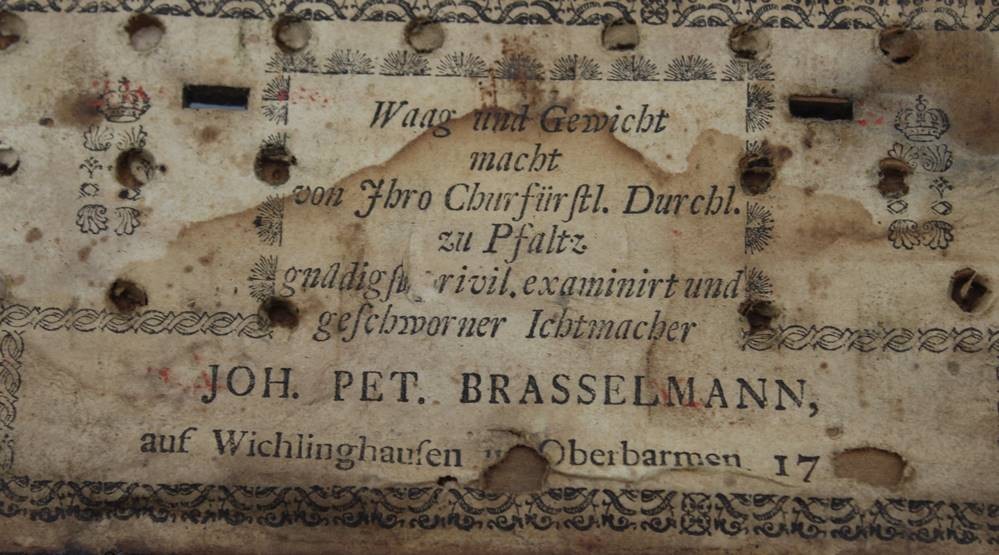 Waag und Gewicht
macht
von Jhro Churfürſtl. Durchl.
zu Pfaltz
examinirt und
geſchworner Ichtmacher
JOH. PET. BRASSELMANN,
auf Wichlinghauſen Oberbarmen 17